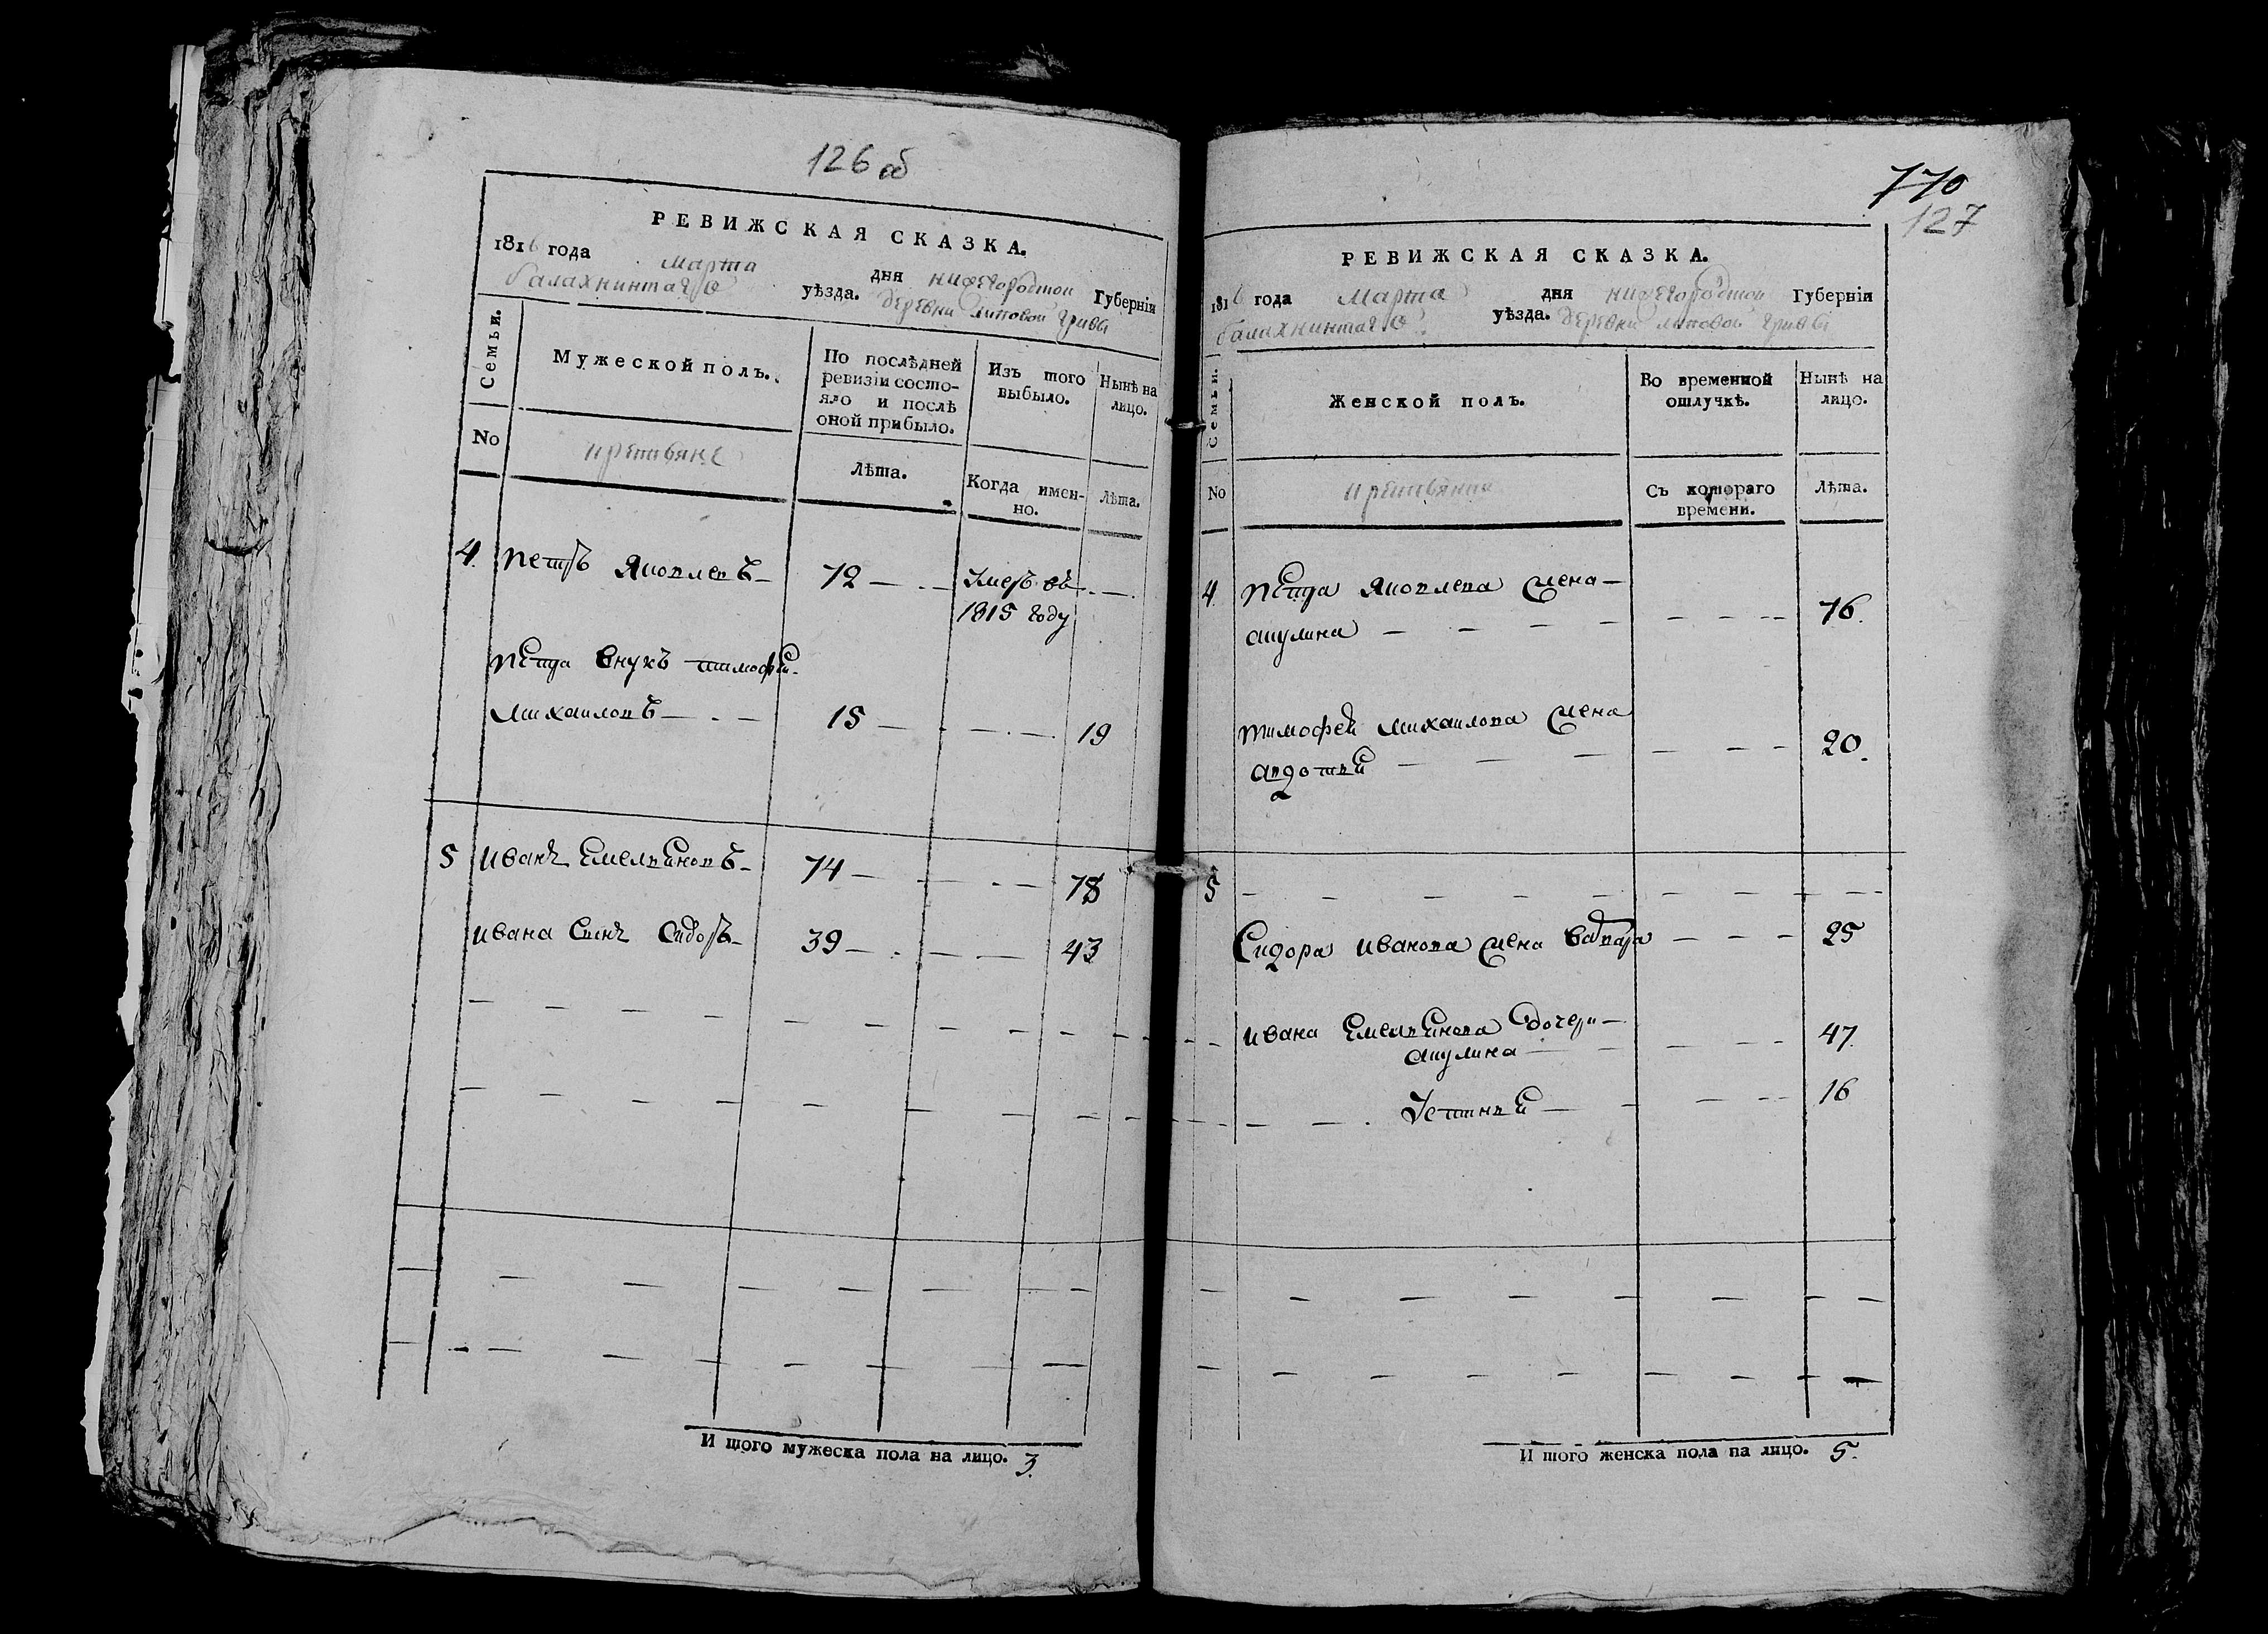 126 об
РЕВИЖСКАЯ СКАЗКА.
1816 года марта дня нижегородской Губернїи
балахнинскаго уѣзда. деревни липовой гривы
Семьи.
Мужеской полъ.
По послѣдней ревизїи состо-
яло и послѣ
оной прибыло.
Изъ того
выбыло.
Нынѣ на
лицо.
No
крестьяне
Лѣта.
Когда имен-
но.
Лѣта.
4. петръ яковлевъ 72 умеръ въ
1815 году
петра внукъ тимофей
михаиловъ 15 19
5 иванъ емельяновъ 74 78
ивана сынъ сидоръ 39 43
И того мужеска пола на лицо. 3.
770
127
РЕВИЖСКАЯ СКАЗКА.
1816 года марта дня нижегородской Губернїи
балахнинскаго уѣзда. деревни липовой гривы
Семьи.
Женской полъ.
Во временной
отлучкѣ.
Нынѣ на
лицо.
No
Съ котораго
времени.
Лѣта.
4. петра яковлева жена
акулина 76.
тимофея михаилова жена
авдотья 20.
5
Сидора иванова жена варвара 25
ивана емельянова дочери
акулина 47.
устинья 16
И того женска пола на лицо. 5.